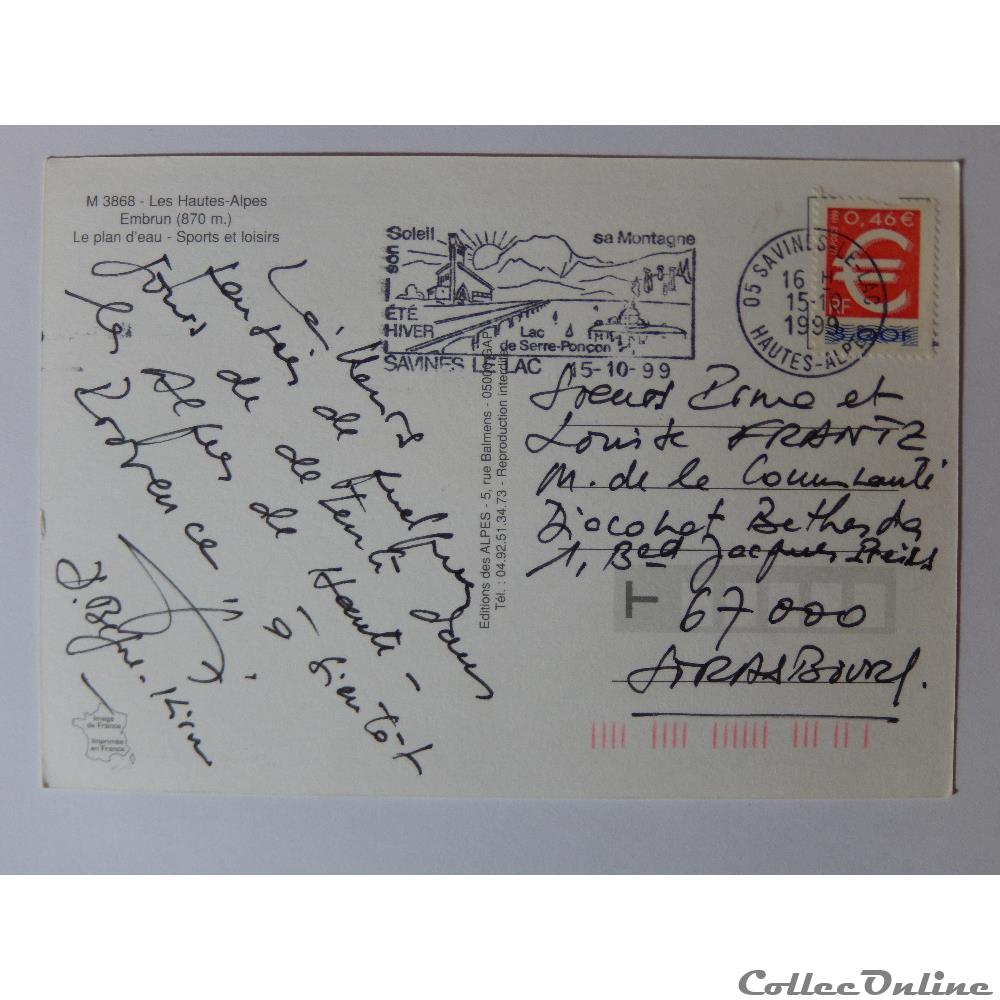 M 3868 - Les Hautes-Alpes
Embrun (870 m.)
Le plan d'eau - Sports et loisirs
Soleil
son
sa Montagne
ÉTÉ
HIVER
Lac
de Serre-Ponçon
SAVINES LE LAC 15-10-99
05 SAVINES-LE-LAC
16 H
15-10
1999
HAUTES-ALPES
0,46 €
€
RF
3,00F
LA POSTE 1999
de quelques
jours de détente dans
les Alpes de Haute-
Provence à bientôt
Editions des ALPES - 5, rue Balmens - 05000 GAP
Tél. : 04.92.51.34.73 - Reproduction interdite
Soeurs et
Louise FRANTZ
M. de la Communauté
Diaconat Bethesda
1, Bed Jacques Preiss
T
67000
STRASBOURG.
Image
de France
Imprimée
en France
CollecOnline